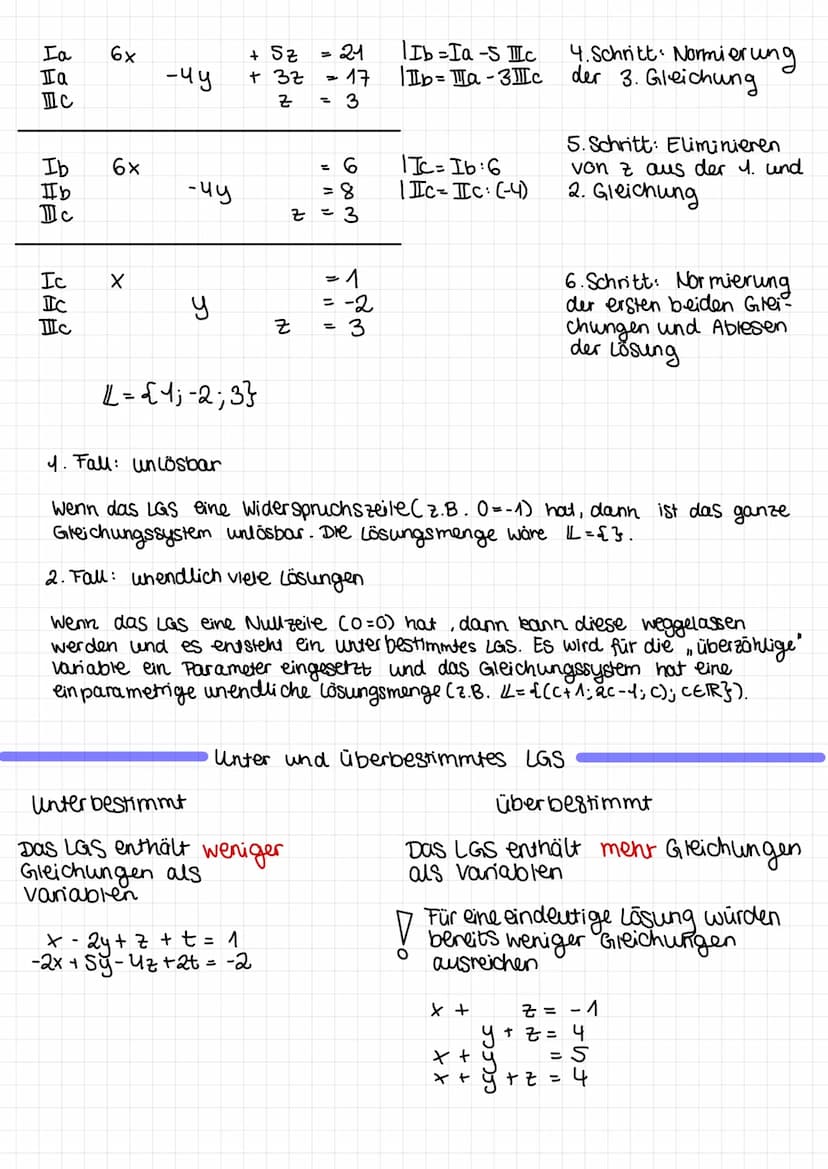 Ia 6x + 5z = 21 | Ib = Ia - 5 IIIc 4. Schritt: Normierung
IIa -4y + 3z = 17 | IIb = IIIa - 3IIIc der 3. Gleichung
IIIc z = 3
5. Schritt: Eliminieren
Ib 6x = 6 | Ic = Ib : 6 von z aus der 1. und
IIb -4y = 8 | IIc = IIc : (-4) 2. Gleichung
IIIc z = 3
Ic x = 1 6. Schritt: Normierung
IIc y = -2 der ersten beiden Glei-
IIIc z = 3 chungen und Ablesen
der Lösung
𝕃 = {1; -2; 3}
1. Fall: unlösbar
Wenn das LGS eine Widerspruchszeile (z.B. 0=-1) hat, dann ist das ganze
Gleichungssystem unlösbar. Die Lösungsmenge wäre 𝕃={}.
2. Fall: unendlich viele Lösungen
Wenn das LGS eine Nullzeile (0=0) hat, dann kann diese weggelassen
werden und es entsteht ein unterbestimmtes LGS. Es wird für die „überzählige"
Variable ein Parameter eingesetzt und das Gleichungssystem hat eine
einparametrige unendliche Lösungsmenge (z.B. 𝕃={(c+1; 2c-1; c); c∈ℝ}).
Unter und überbestimmtes LGS
Unterbestimmt
Das LGS enthält weniger
Gleichungen als
Variablen
x - 2y + z + t = 1
-2x + 5y - 4z + 2t = -2
überbestimmt
Das LGS enthält mehr Gleichungen
als Variablen
! Für eine eindeutige Lösung würden
bereits weniger Gleichungen
ausreichen
x + z = -1
y + z = 4
x + y = 5
x + y + z = 4